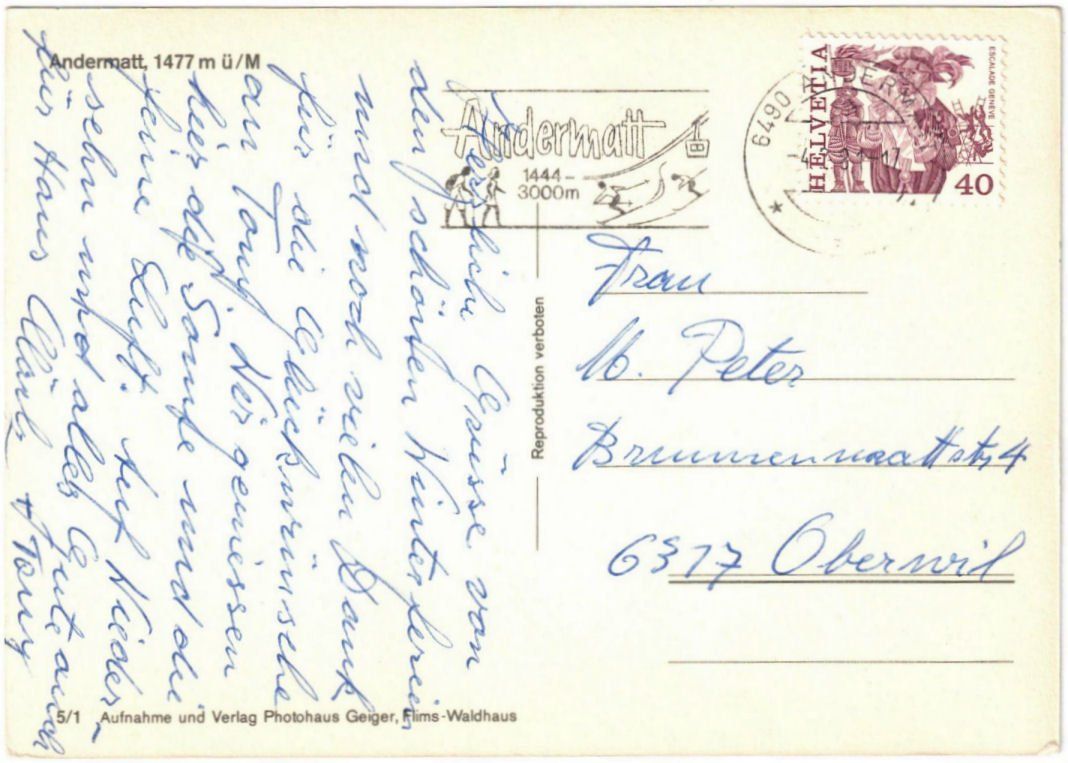 Andermatt, 1477 m ü/M
Herzliche Grüsse von
den schönen Winterferien
und noch vielen Dank
für die Glückwünsche
an Tony. Wir geniessen
hier die Sonne und die
feine Luft. Auf Wieder-
sehn und alles Gute auch
für Hans
+ Tony
Andermatt
1444 -
3000m
6490 ANDERMATT
HELVETIA
ESCALADE GENÈVE
40
Reproduktion verboten
Frau
M. Peter
Brunnenmattstr 4
6317 Oberwil
5/1 Aufnahme und Verlag Photohaus Geiger, Flims-Waldhaus